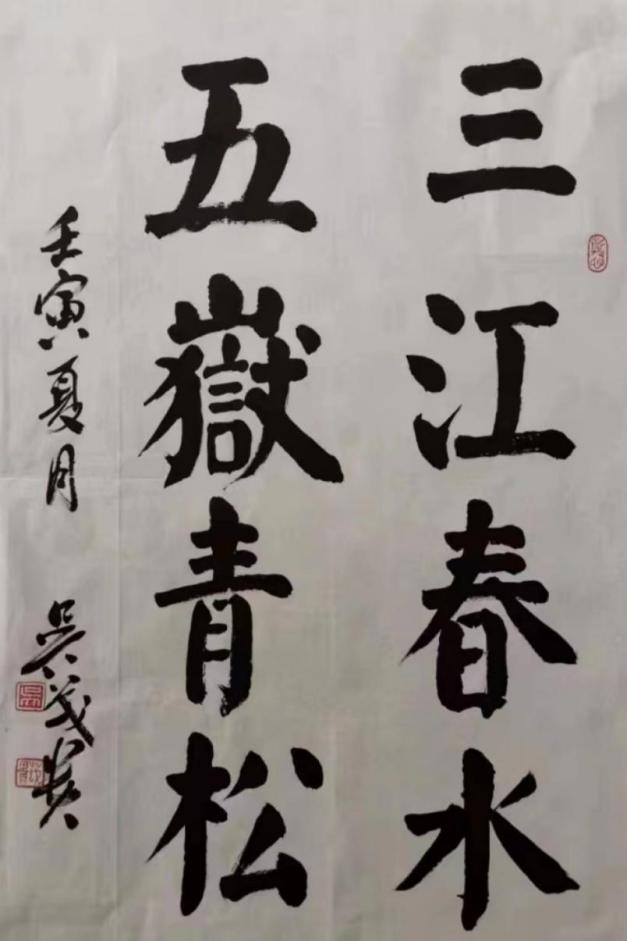 三江春水
五嶽青松
壬寅夏月
吳茂